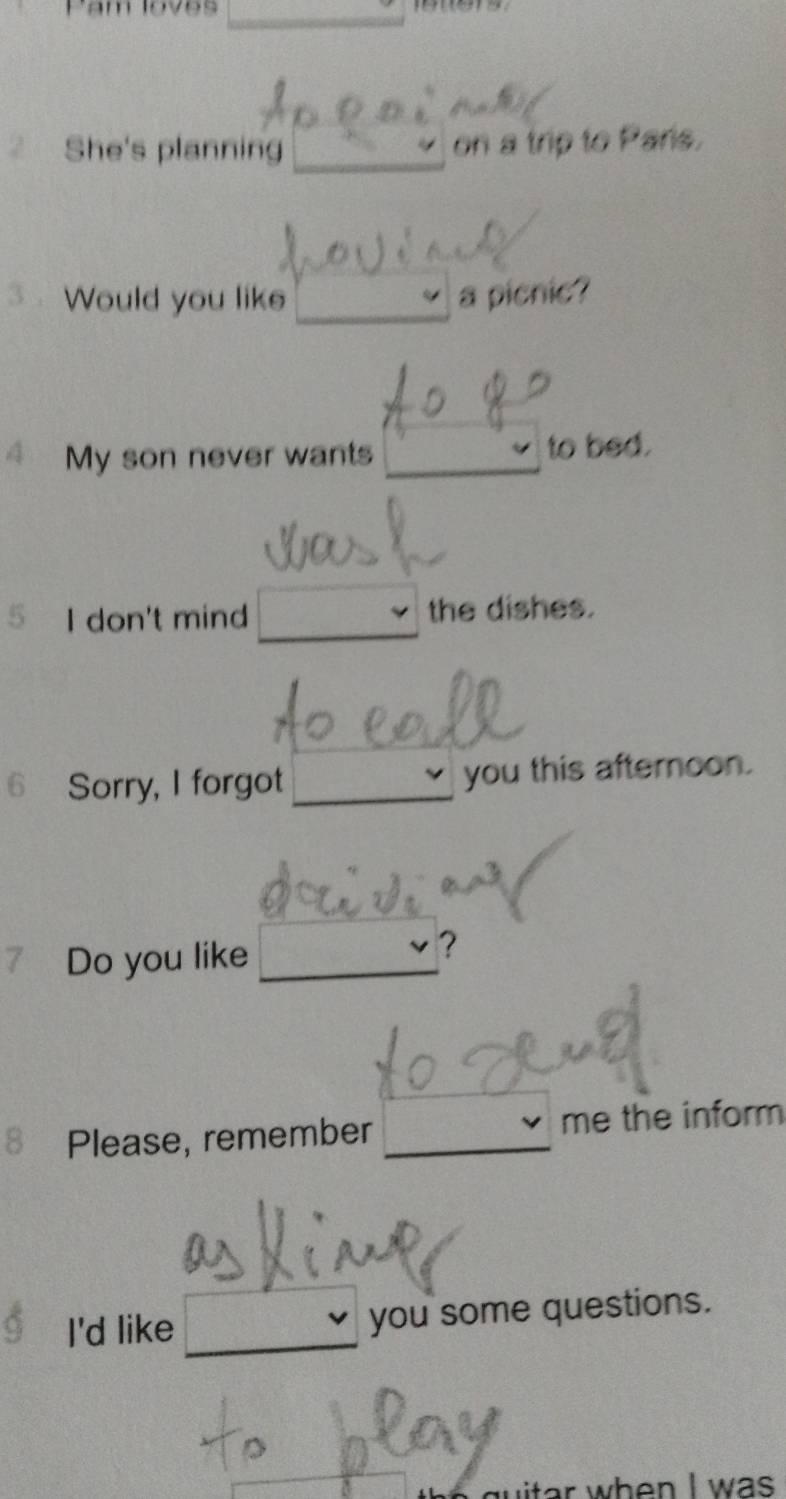 Pam loves letters.
2 She's planning on a trip to Paris.
having
3 Would you like a picnic?
to go
4 My son never wants to bed.
wash
5 I don't mind the dishes.
to call
6 Sorry, I forgot you this afternoon.
7 Do you like ?
to send
8 Please, remember me the inform
asking
9 I'd like you some questions.
to play
the guitar when I was